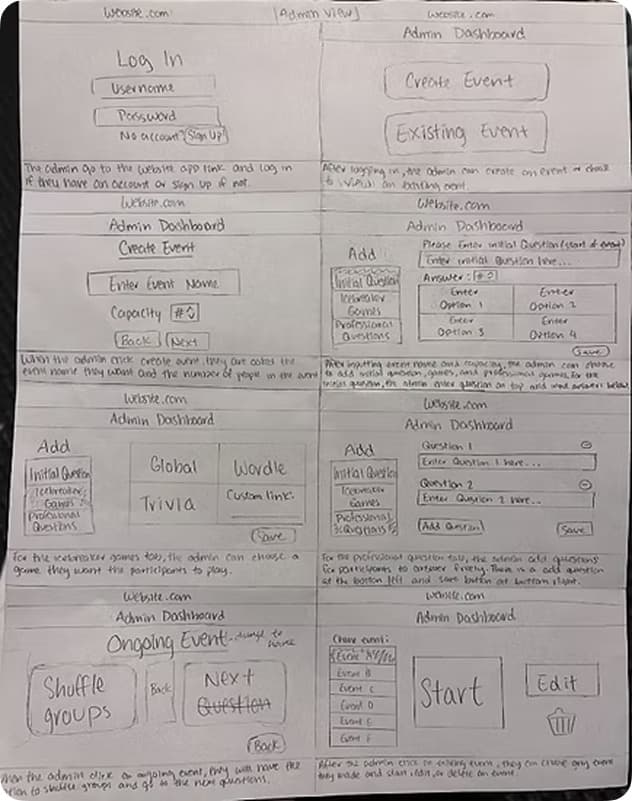 Website.com
[Admin View]
Website.com
Log In
Username
Password
No account? Sign Up
The admin go to the website app link and log in
if they have an account or sign up if not.
Admin Dashboard
Create Event
Existing Event
After logging in, the admin can create an event or choose
to view an existing event.
Website.com
Admin Dashboard
Create Event
Enter Event Name
Capacity #
Back Next
When the admin click create event, they are asked the
event name they want and the number of people in the event
Website.com
Admin Dashboard
Add
Initial Question
Icebreaker
Games
Professional
Questions
Please Enter initial Question (start of event)
Enter initial Question here...
Answer: #
Enter
Option 1
Enter
Option 2
Enter
Option 3
Enter
Option 4
Save
After inputting event name and capacity, the admin can choose
to add initial question, games, and professional games. For the
initial question, the admin enter question on top and answers below.
Website.com
Admin Dashboard
Add
Initial Question
Icebreaker
Games
Professional
Questions
Global
Wordle
Trivia
Custom link:
Save
For the icebreaker games tab, the admin can choose a
game they want the participants to play.
Website.com
Admin Dashboard
Add
Initial Question
Icebreaker
Games
Professional
Question 1
Enter Question 1 here...
Question 2
Enter Question 2 here...
Add Question
Save
For the professional question tab, the admin add questions
for participants to answer freely. There is a add question
at the bottom left and save button at bottom right.
Website.com
Admin Dashboard
Ongoing Event
Shuffle
groups
Back
Next
Question
Back
When the admin click on ongoing event, they will have the
option to shuffle groups and go to the next questions.
Website.com
Admin Dashboard
Choose event:
Event
Event B
Event C
Event D
Event E
Event F
Start
Edit
After the admin click on existing event, they can choose any event
they made and start, edit, or delete an event.